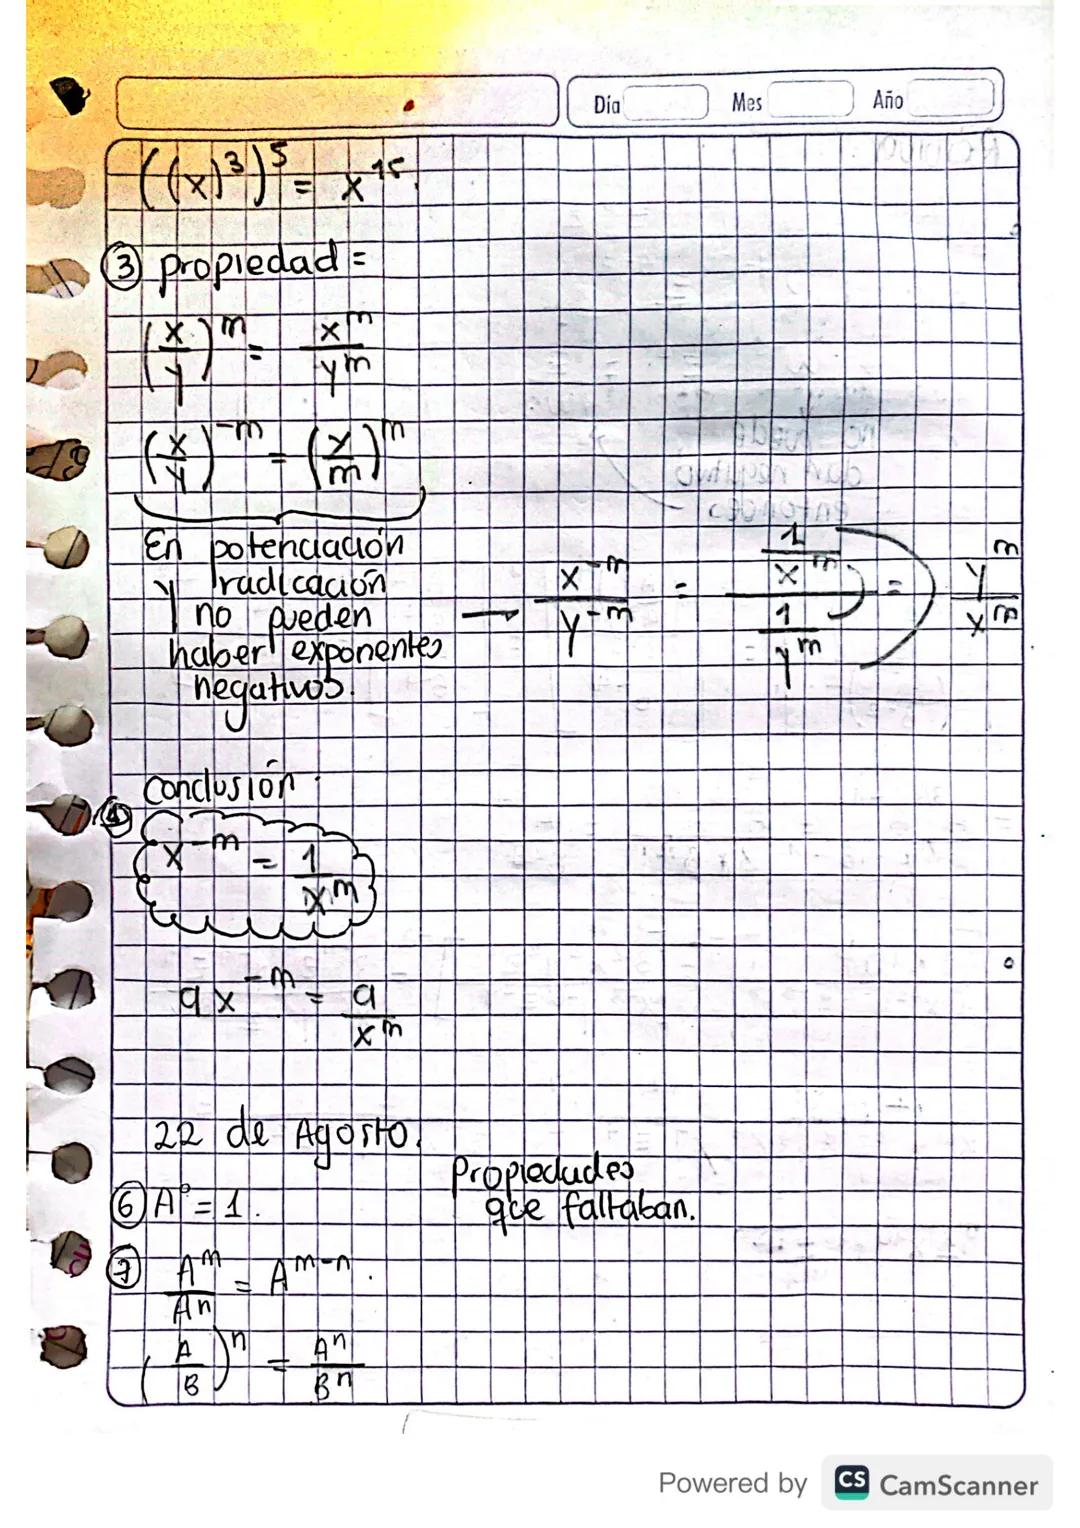 Día Mes Año
((x)³)⁵ = x¹⁵.
③ propiedad =
(x/y)^m = x^m/y^m
(x/y)^-m = (y/m)^m
En potenciación
y radicación
no pueden
haber exponentes
negativos.
→ x^-m/y^-m = (1/x^m)/(1/y^m) = y^m/x^m
Conclusión
④ x^-m = 1/x^m
ax^-m = a/x^m
22 de Agosto.
Propiedades
que faltaban.
⑥ A⁰ = 1.
⑦ A^m/A^n = A^m-n.
(A/B)^n = A^n/B^n
Powered by CS CamScanner